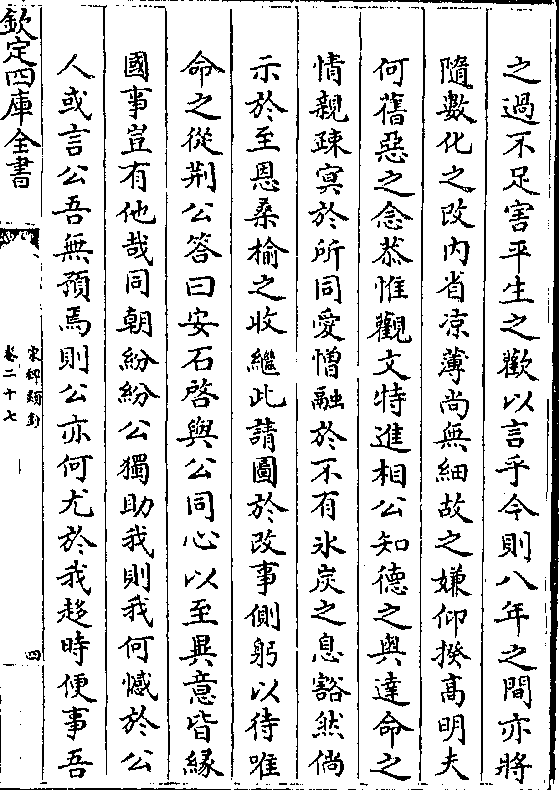 之過不足害平生之歡以言乎令則八年之間亦將
隨數化之改内省凉薄尚無細故之嫌仰揆髙明夫
何舊惡之念恭惟觀文特進相公知德之奥達命之
情親疎㝠於所同愛憎融於不有氷炭之息豁然倘
示於至恩桑榆之收繼此請圖於改事側躬以待唯
命之從荆公答曰安石啓與公同心以至異意皆縁
國事豈有他哉同朝紛紛公獨助我則我何憾於公
人或言公吾無預焉則公亦何尤於我趍時便事吾
欽定四庫全書
宋稗類鈔
卷二十七
四